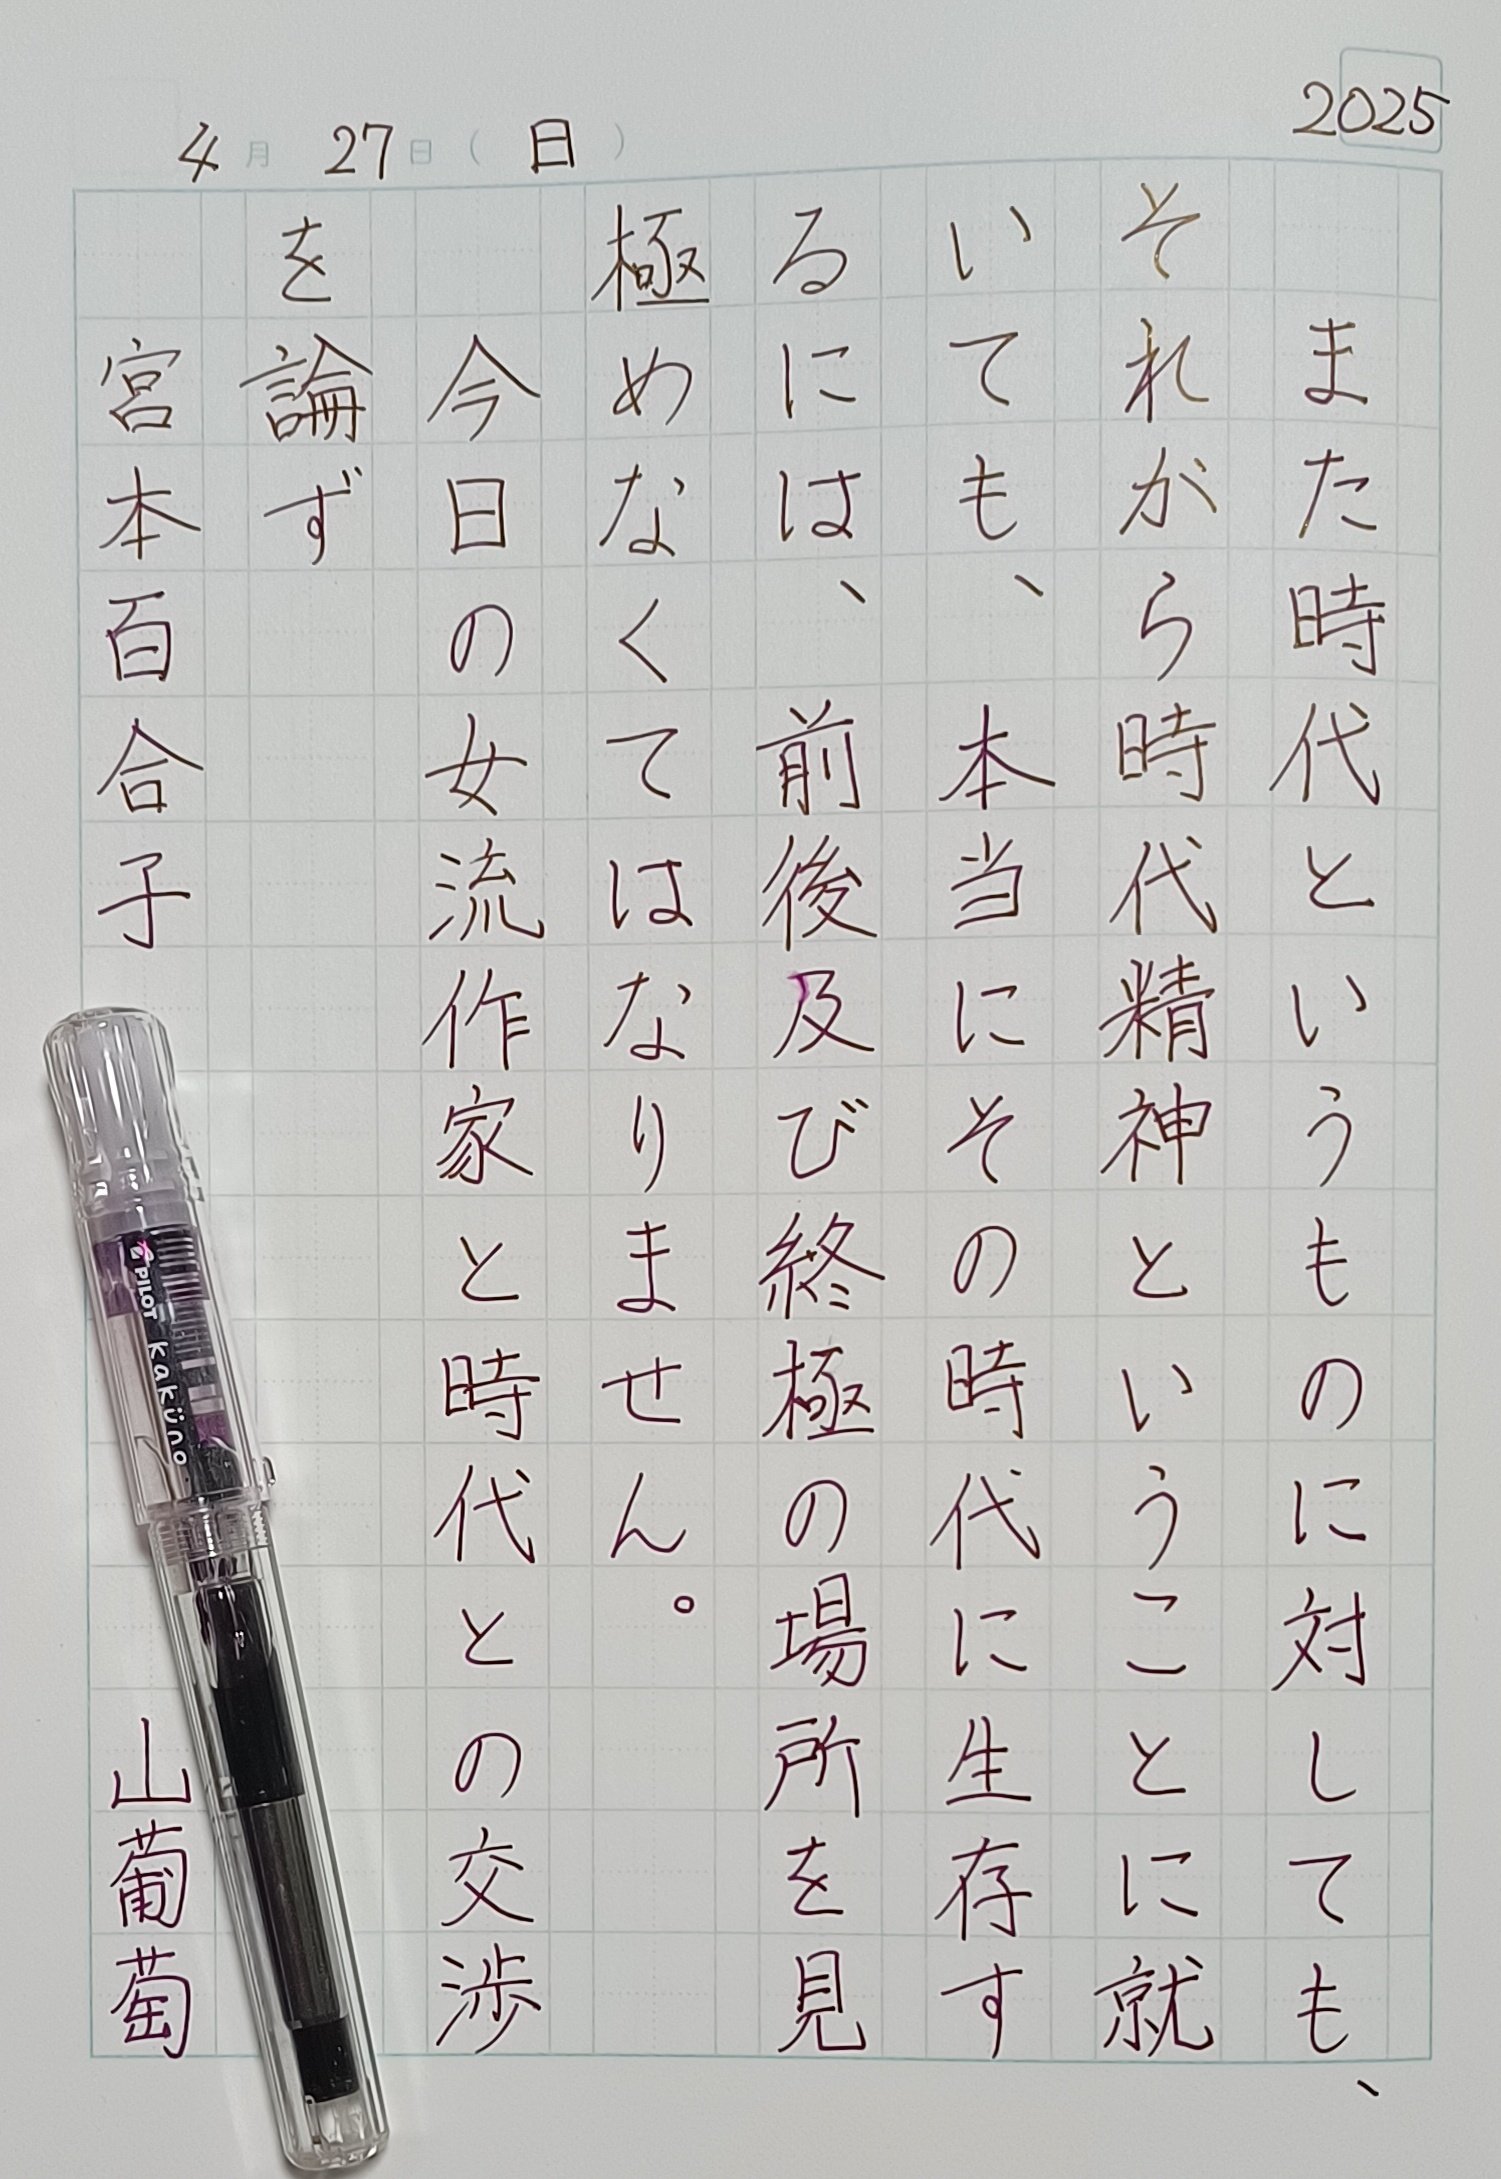 2025
4月27日(日)
また時代というものに対しても、
それがら時代精神ということに就
いても、本当にその時代に生存す
るには、前後及び終極の場所を見
極めなくてはなりません。
今日の女流作家と時代との交渉
を論ず
宮本百合子 山葡萄
PILOT kaküno